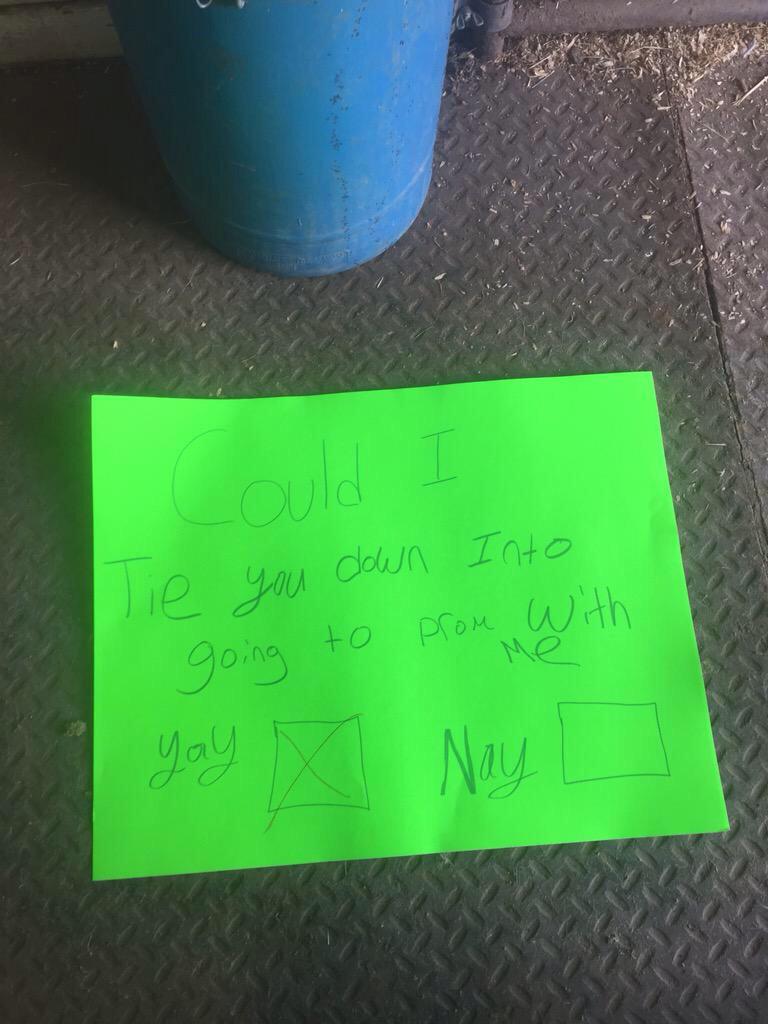 Could I
Tie you down Into
going to prom with
me
yay Nay